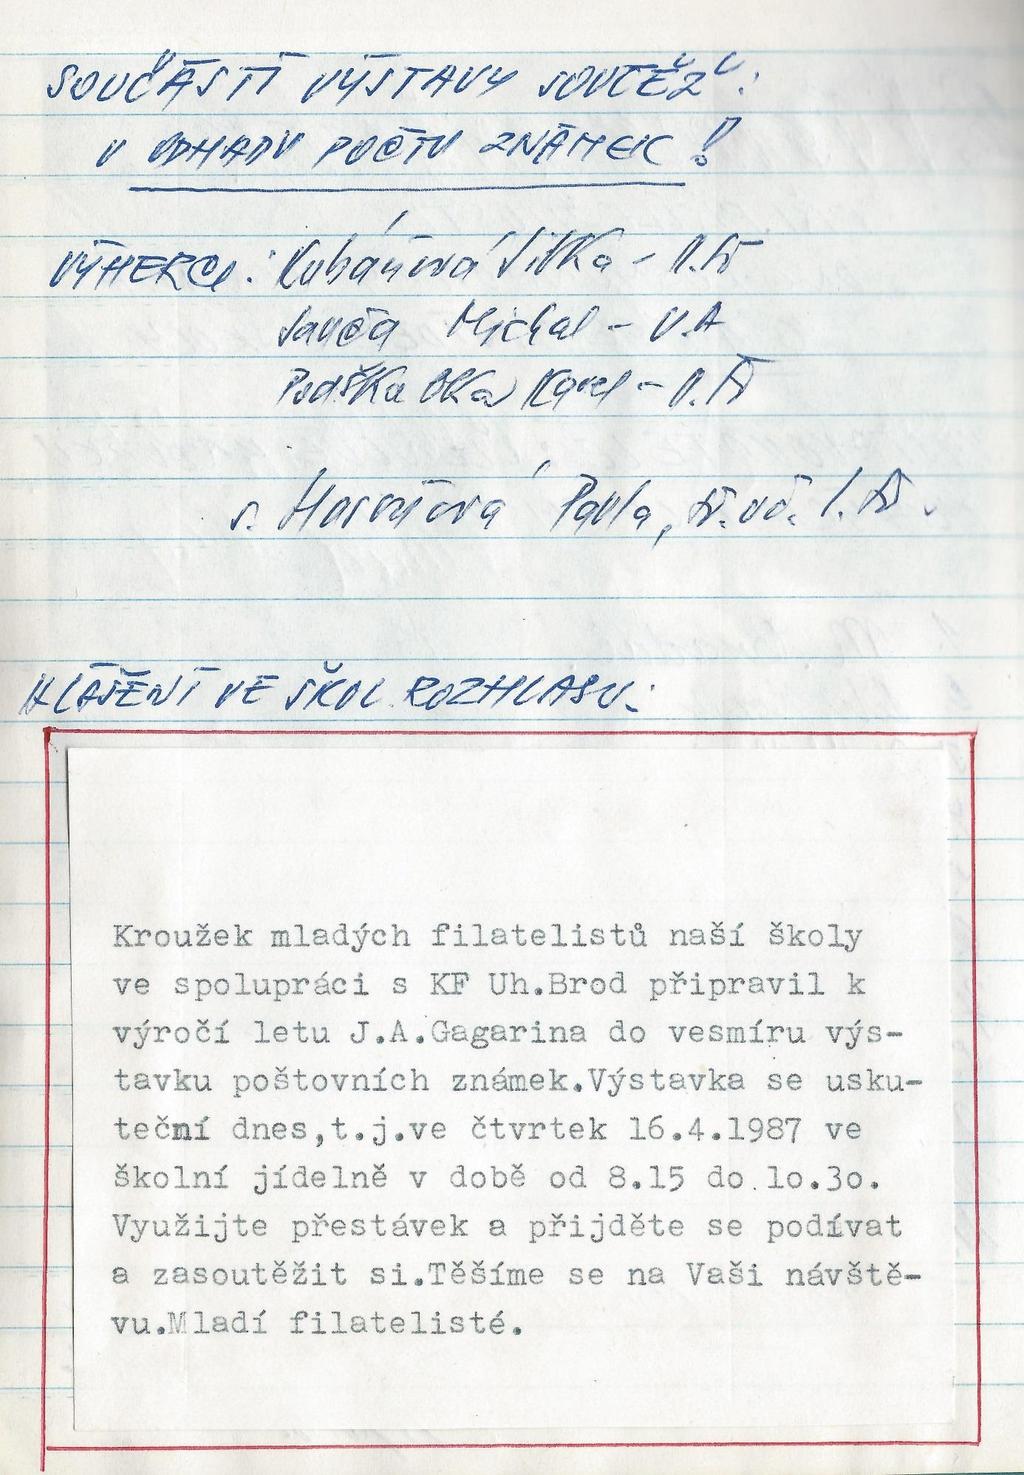 SOUČÁSTÍ VÝSTAVY SOUTĚŽ:
V ODHADU POČTU ZNÁMEK!
VÝHERCI: Kubáňová Jitka - V.
Michal - V.A
Karel - V.
s. Horňiová Pavla,
HLÁŠENÍ VE ŠKOL. ROZHLASU:
Kroužek mladých filatelistů naší školy
ve spolupráci s KF Uh.Brod připravil k
výročí letu J.A.Gagarina do vesmíru výs-
tavku poštovních známek.Výstavka se usku-
teční dnes,t.j.ve čtvrtek 16.4.1987 ve
školní jídelně v době od 8.15 do lo.3o.
Využijte přestávek a přijděte se podívat
a zasoutěžit si.Těšíme se na Vaši návště-
vu.Mladí filatelisté.